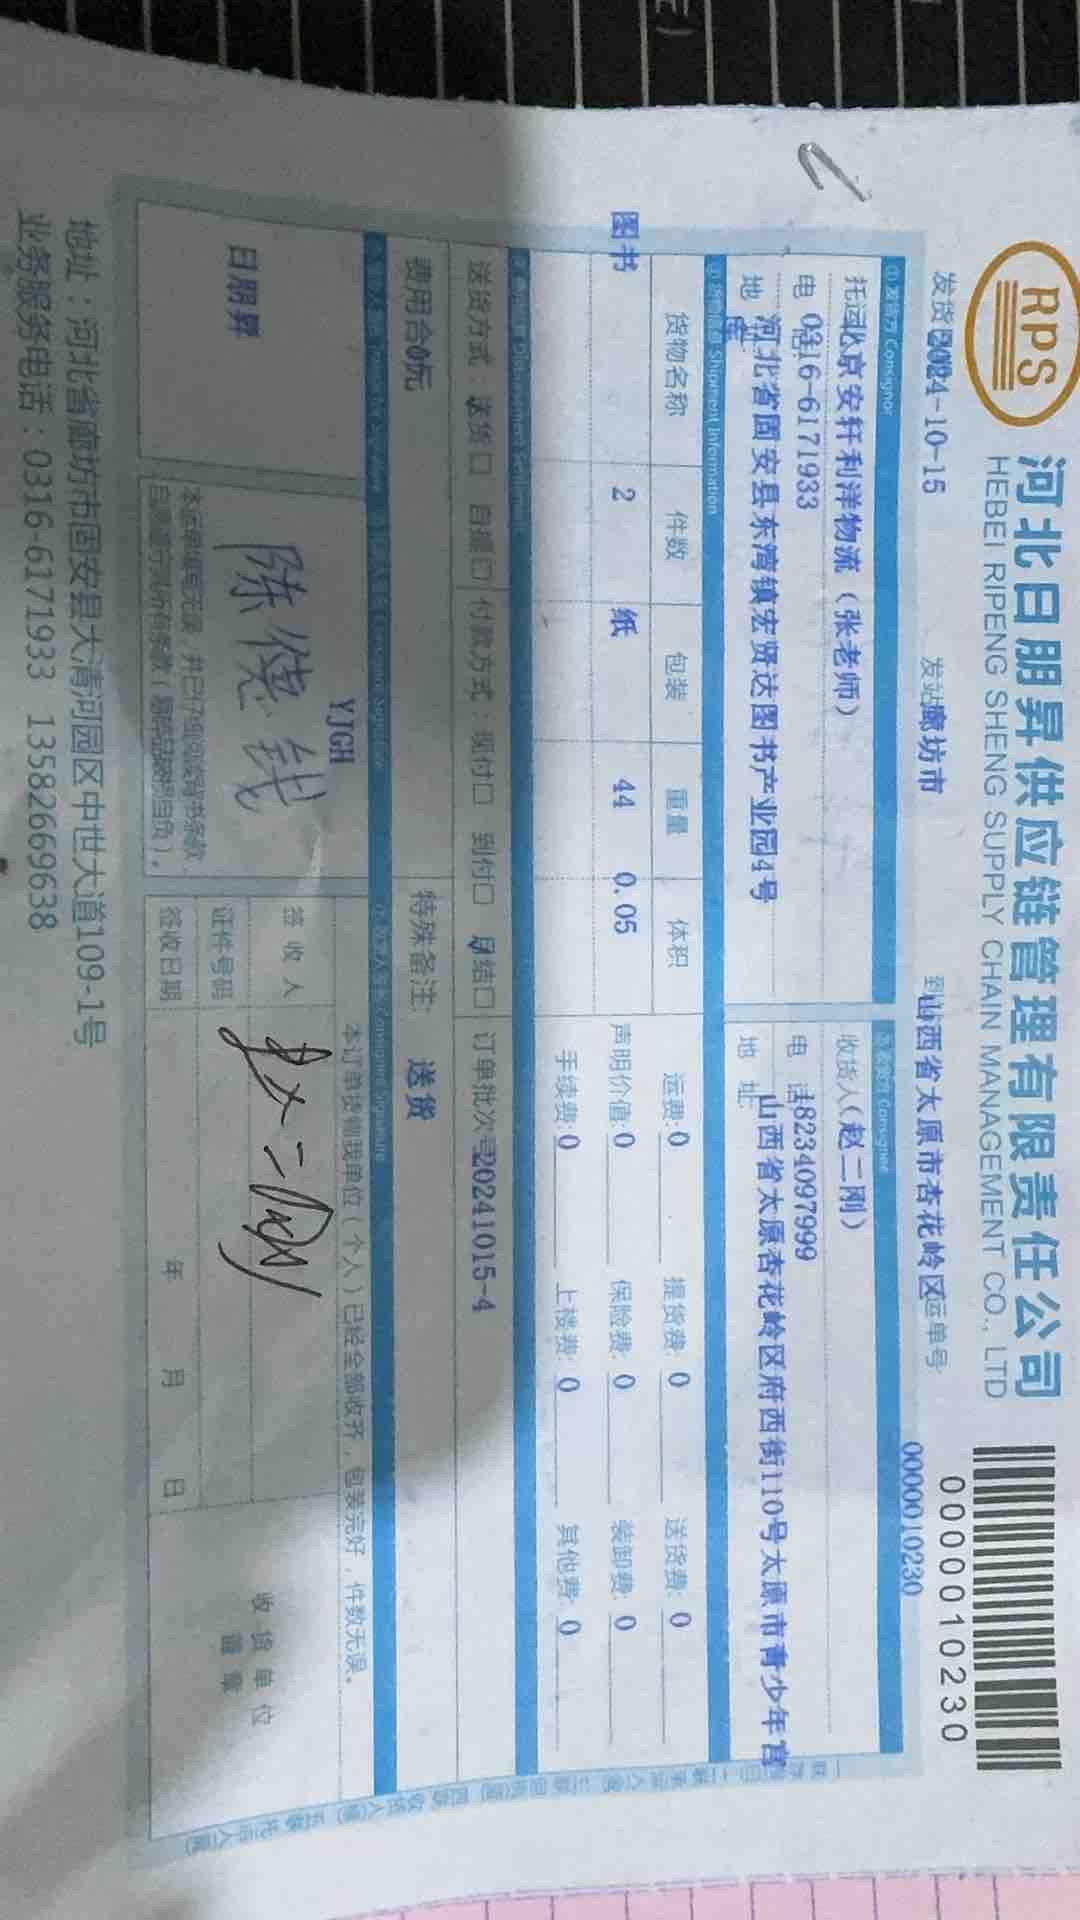 RPS
河北日朋昇供应链管理有限责任公司
HEBEI RIPENG SHENG SUPPLY CHAIN MANAGEMENT CO., LTD
0000010230
发货日2024-10-15 发站廊坊市 到山西省太原市杏花岭区运单号 0000010230
①发货方 Consignor
托运北京安轩利洋物流（张老师）
电 0316-6171933
地 河北省固安县东湾镇宏贤达图书产业园4号
库
②收货方 Consignee
收货人(赵二刚)
电 话18234097999
地 址 山西省太原杏花岭区府西街110号太原市青少年宫
Shipment Information
货物名称 件数 包装 重量 体积
图书 2 纸 44 0.05
运费:0 提货费: 0 送货费: 0
声明价值:0 保险费: 0 装卸费: 0
手续费:0 上楼费: 0 其他费: 0
送货方式：送货口 自提口 付款方式：现付口 到付口 月结口 订单批次号20241015-4
费用合0元 特殊备注: 送货
日朋昇
YJGH
陈德钱
本订单货物我单位（个人）已经全部收齐，包装完好，件数无误。
签收人 赵二刚
证件号码
签收日期 年 月 日
收货单位
盖章
地址：河北省廊坊市固安县大清河园区中世大道109-1号
业务服务电话：0316-6171933 13582669638